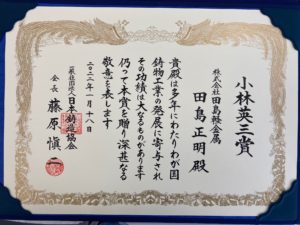 小林英三賞
株式会社 田島軽金属
田島正明殿
貴殿は多年にわたりわが国
鋳物工業の発展に寄与され
その功績は大なるものがあります
仍って本賞を贈り深甚なる
敬意を表します
二〇二二年一月十八日
一般社団法人日本鋳造協会
会長 藤原愼二